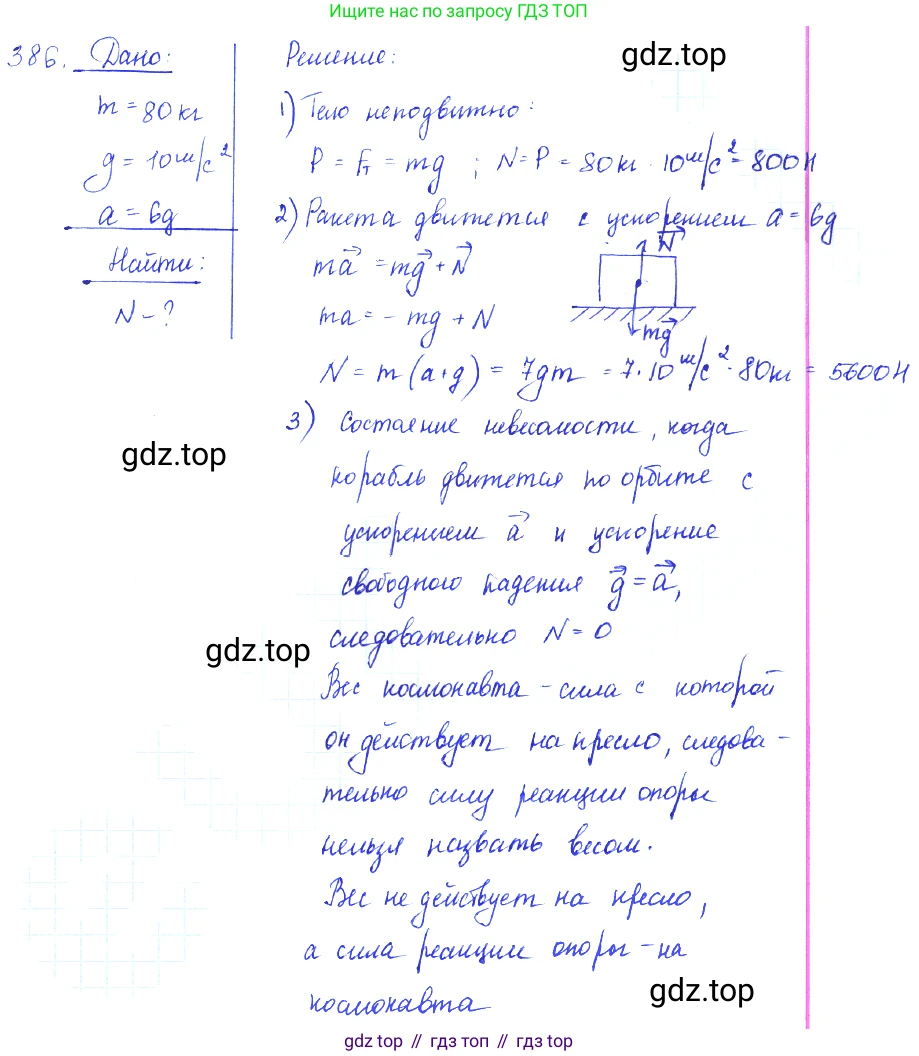 Ищите нас по запросу ГДЗ ТОП
386. Дано:
m = 80 кг
g = 10 м/с²
a = 6g
Найти:
N - ?
Решение:
gdz.top
1) Тело неподвижно:
P = Fт = mg ; N = P = 80 кг · 10 м/с² = 800 Н
2) Ракета движется с ускорением a = 6g
ma⃗ = mg⃗ + N⃗
ma = - mg + N
N⃗
mg⃗
N = m (a+g) = 7gm = 7·10 м/с² · 80 кг = 5600 Н
3) Состояние невесомости, когда
gdz.top
корабль движется по орбите с
ускорением a⃗ и ускорение
свободного падения g⃗ = a⃗,
следовательно N = 0
gdz.top
Вес космонавта - сила с которой
он действует на кресло, следова-
тельно силу реакции опоры
нельзя назвать весом.
Вес не действует на кресло,
а сила реакции опоры - на
космонавта
gdz.top
gdz.top // гдз топ // gdz.top